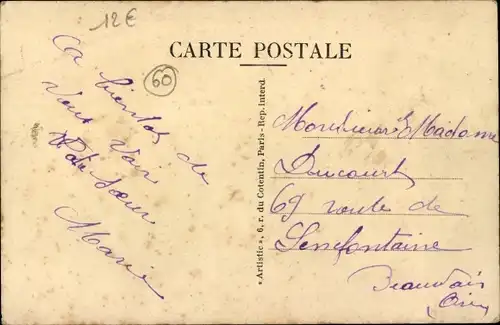 12€
CARTE POSTALE
60
Ça bientôt de
vous voir
Vote Sœur
Marie
« Artistic », 6, r. du Cotentin, Paris - Rep. interd.
Monsieur & Madame
Ducourt
69 route de
Senefontaine
Beauvais
(Oise)